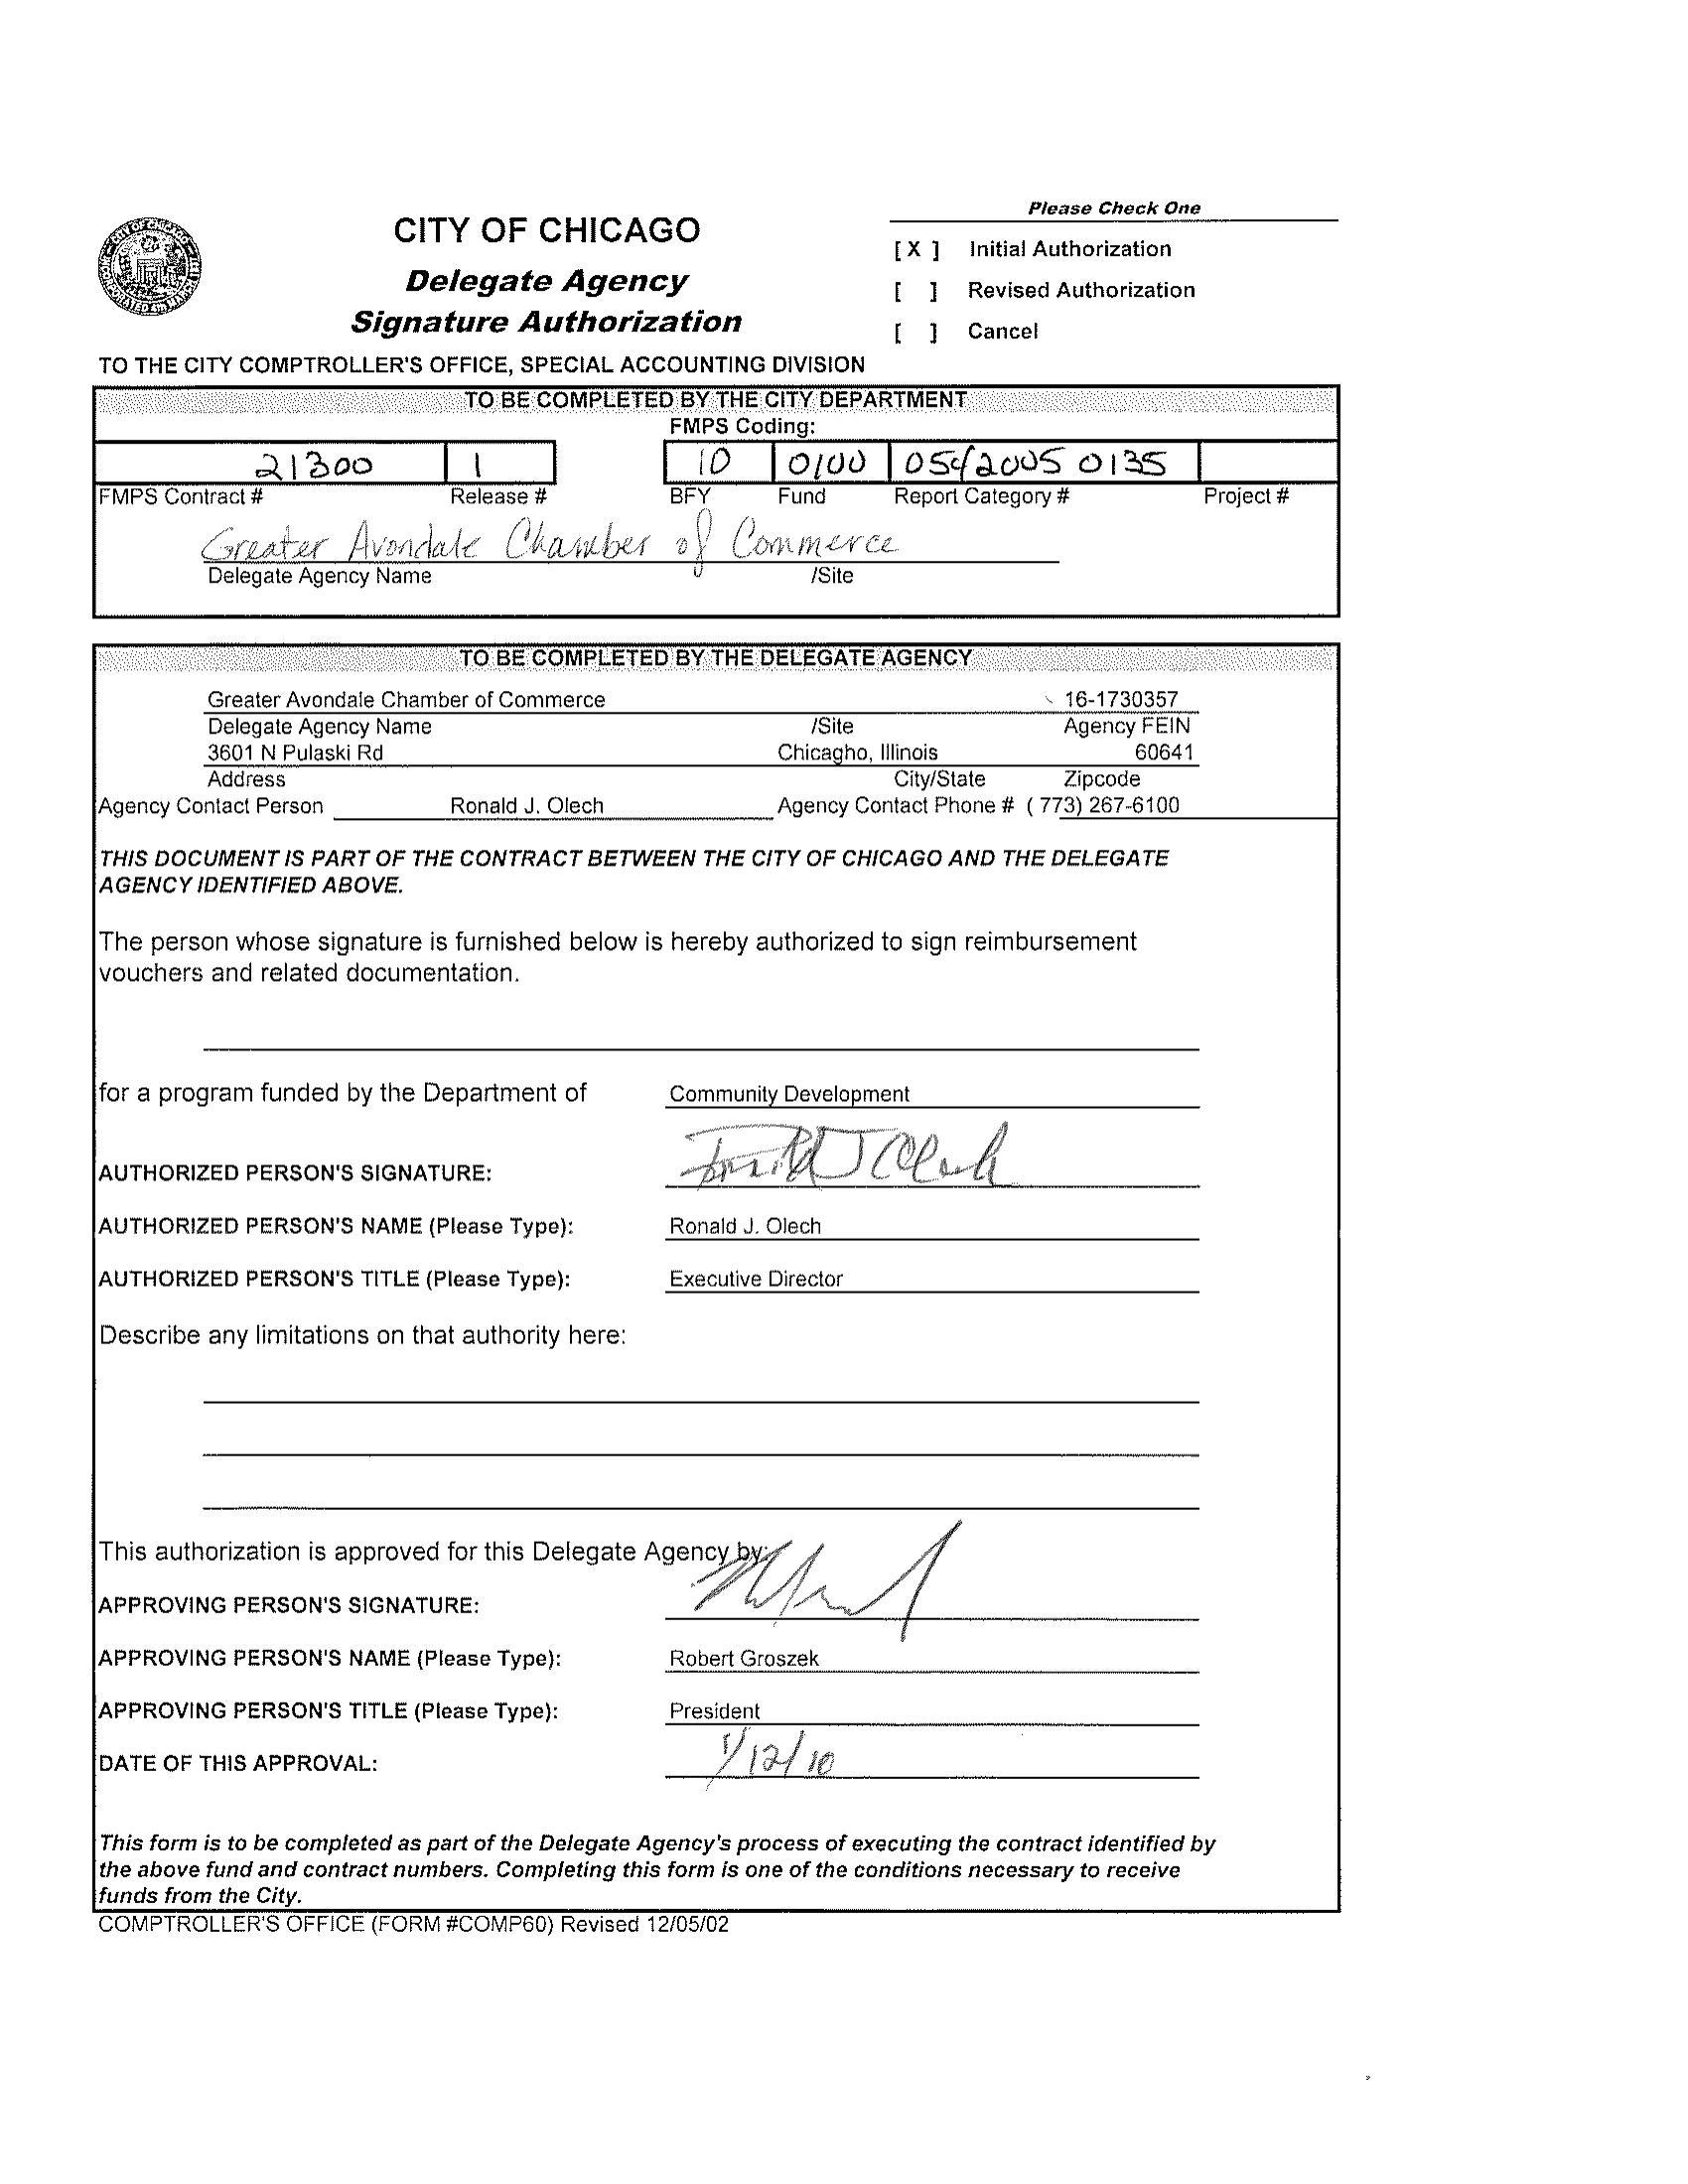 Please Check One
CITY OF CHICAGO
[ X ] Initial Authorization
Delegate Agency
[ ] Revised Authorization
Signature Authorization
[ ] Cancel
TO THE CITY COMPTROLLER'S OFFICE, SPECIAL ACCOUNTING DIVISION
TO BE COMPLETED BY THE CITY DEPARTMENT
FMPS Coding:
21300 1 10 0100 0542005 0135
FMPS Contract # Release # BFY Fund Report Category # Project #
Greater Avondale Chamber of Commerce
Delegate Agency Name /Site
TO BE COMPLETED BY THE DELEGATE AGENCY
Greater Avondale Chamber of Commerce 16-1730357
Delegate Agency Name /Site Agency FEIN
3601 N Pulaski Rd Chicagho, Illinois 60641
Address City/State Zipcode
Agency Contact Person Ronald J. Olech Agency Contact Phone # ( 773) 267-6100
THIS DOCUMENT IS PART OF THE CONTRACT BETWEEN THE CITY OF CHICAGO AND THE DELEGATE
AGENCY IDENTIFIED ABOVE.
The person whose signature is furnished below is hereby authorized to sign reimbursement
vouchers and related documentation.
for a program funded by the Department of Community Development
AUTHORIZED PERSON'S SIGNATURE: Ronald J Olech
AUTHORIZED PERSON'S NAME (Please Type): Ronald J. Olech
AUTHORIZED PERSON'S TITLE (Please Type): Executive Director
Describe any limitations on that authority here:
This authorization is approved for this Delegate Agency by:
APPROVING PERSON'S SIGNATURE:
APPROVING PERSON'S NAME (Please Type): Robert Groszek
APPROVING PERSON'S TITLE (Please Type): President
DATE OF THIS APPROVAL: 1/12/10
This form is to be completed as part of the Delegate Agency's process of executing the contract identified by
the above fund and contract numbers. Completing this form is one of the conditions necessary to receive
funds from the City.
COMPTROLLER'S OFFICE (FORM #COMP60) Revised 12/05/02